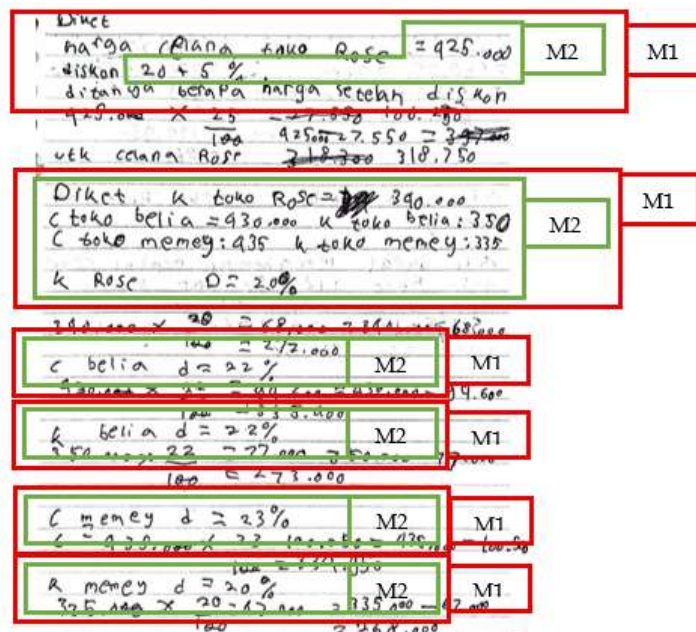 Diket
harga celana toko Rose = 425.000 M2 M1
diskon 20 + 5 %
ditanya berapa harga setelah diskon
425.000 x 25
100 425000 27.550 =
utk celana Rose 318.300 318.750
Diket k toko Rose = 340.000 M1
C toko belia = 430.000 k toko belia : 350 M2
C toko memey : 435 k toko memey : 335
k Rose D = 20%
340.000 x 20 = 68.000 = 340.000 - 68.000
100 = 272.000
C belia d = 22% M2 M1
430.000 x 22 = 94.600 = 430.000 - 94.600
100
k belia d = 22% M2 M1
350.000 x 22 = 77.000
100 = 273.000
C memey d = 23% M2 M1
100
k memey d = 20% M2 M1
335.000 x 20 = 67.000 = 335.000 - 67.000
100 = 268.000